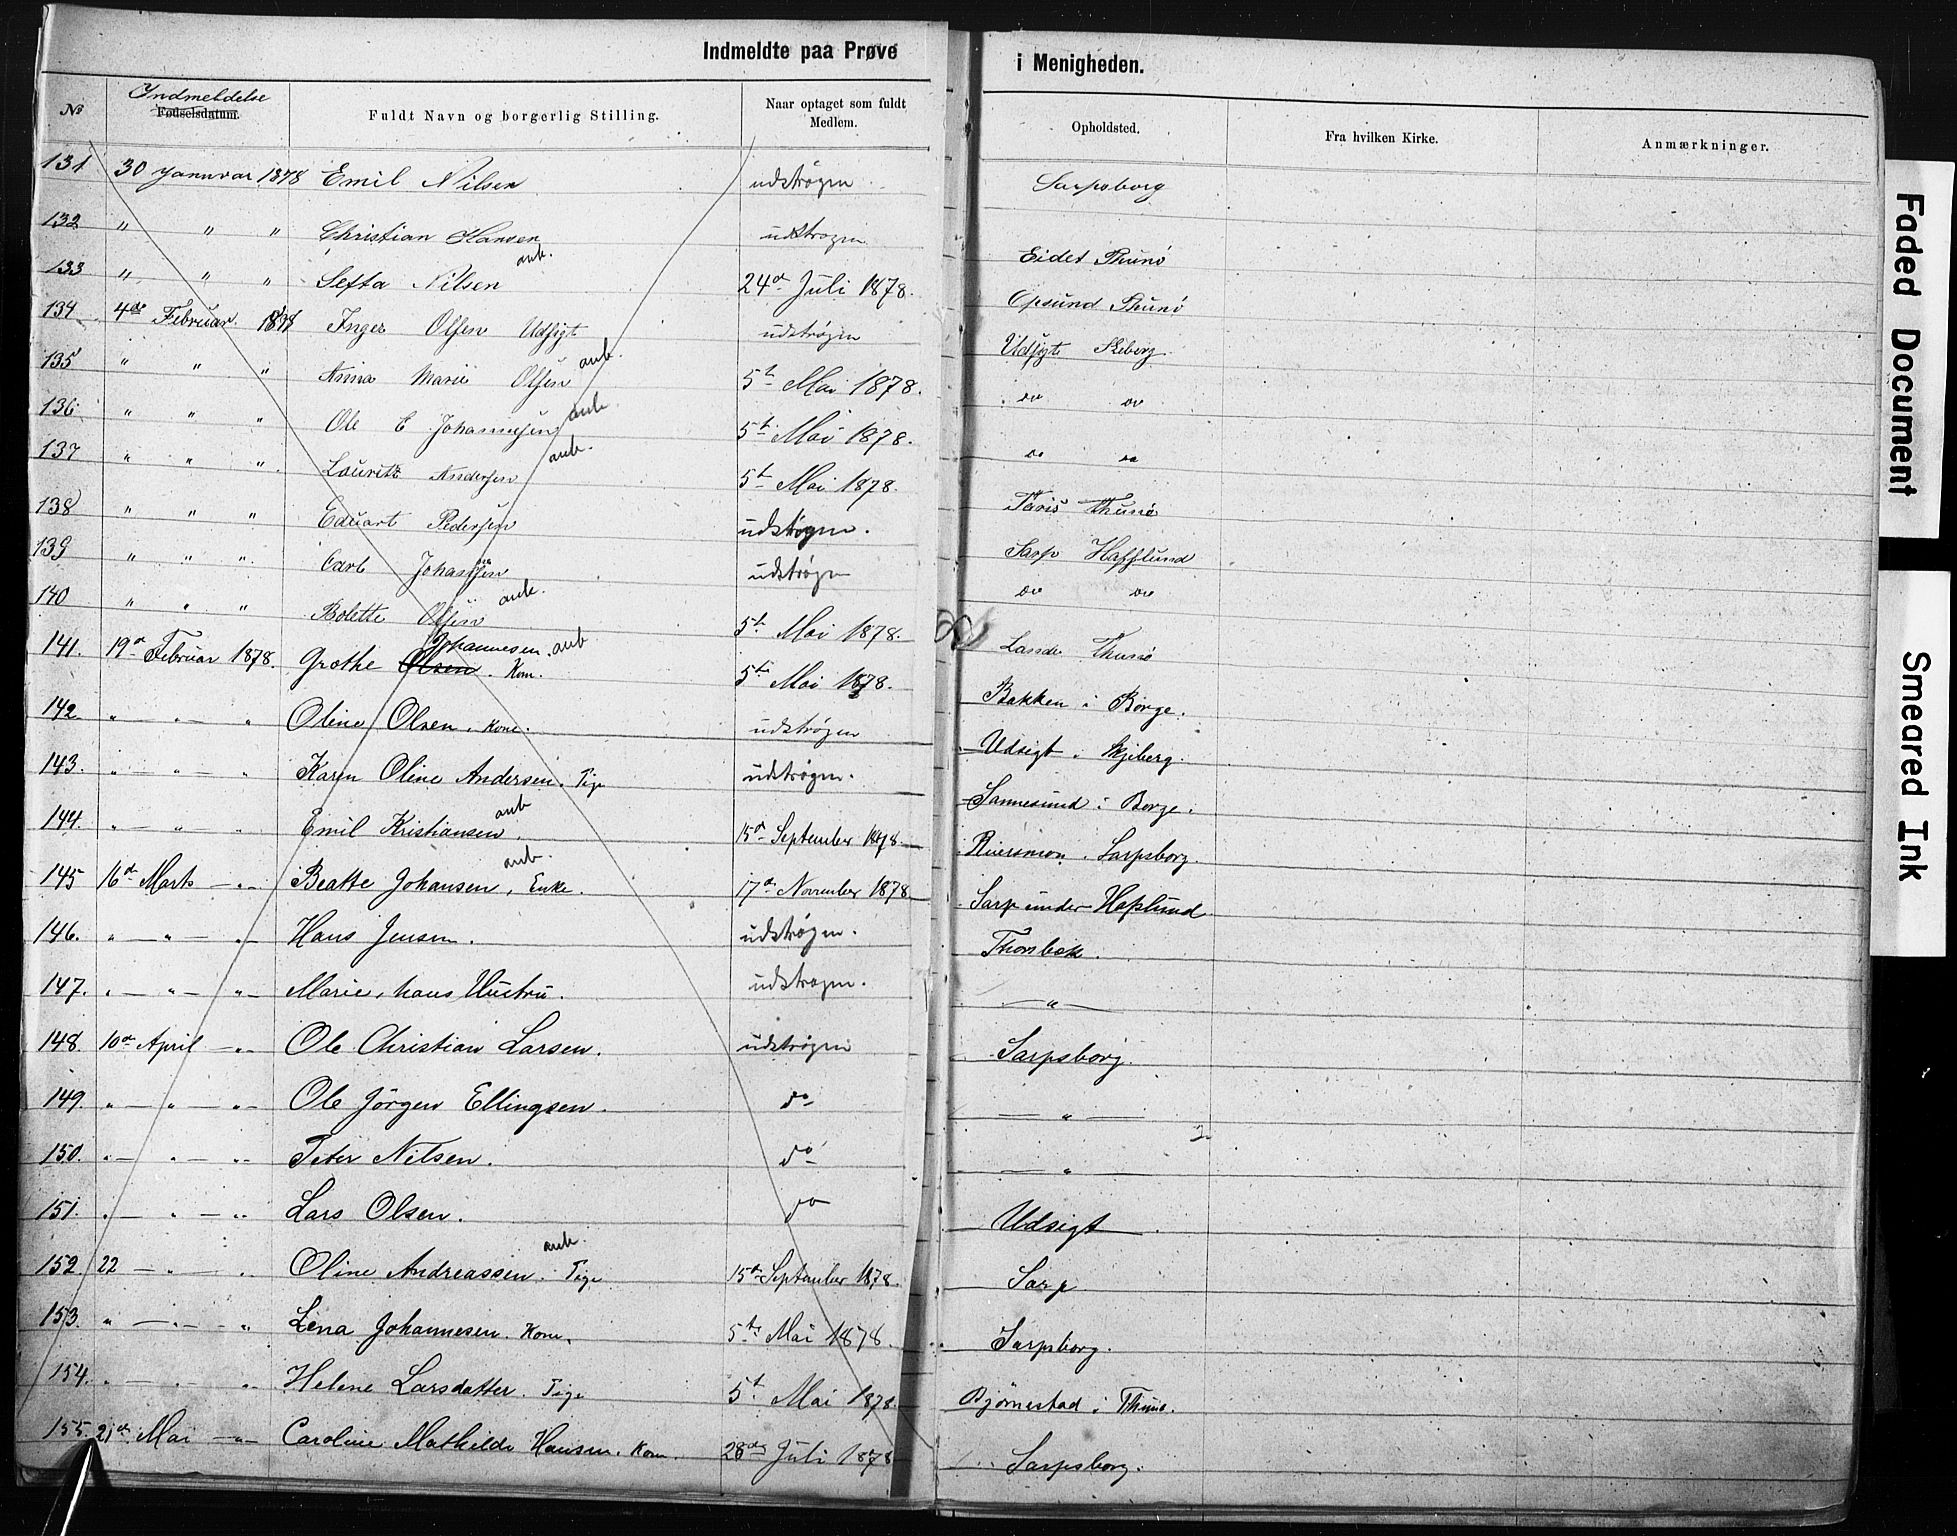 Indmeldte paa Prøve i Menigheden.
№ Indmeldelse Fødselsdatum. Fuldt Navn og borgerlig Stilling. Naar optaget som fuldt Medlem. Opholdsted. Fra hvilken Kirke. Anmærkninger.
131 30 Januar 1878 Emil Nilsen udstrøgen Sarpsborg
132 " " " Christian Hansen udstrøgen Eidet Thunø
133 " " " Sefta Nilsen anb. 24de Juli 1878. Opsund Thunø
134 4de Februar 1878 Inger Olsen Udsigt udstrøgen Udsigt Skiberg
135 " " " Anna Marie Olsen anb. 5te Mai 1878. do do
136 " " " Ole E Johannesen anb. 5te Mai 1878. do do
137 " " " Lauritz Andersen anb. 5te Mai 1878. Thunø
138 " " " Eduart Pedersen udstrøgen. Sarp Hafslund
139 " " " Carl Johansen udstrøgen do do
140 " " " Bolette Olsen anb. 5te Mai 1878. Lande Thunø
141. 19de Februar 1878. Grethe Olsen Johannesen. Kone. anb 5te Mai 1878. Bakken i Borge.
142 " — " — " Oline Olsen. Kone. udstrøgen Udsigt i Skjeberg.
143. " — " — " Karen Oline Andersen. Pige udstrøgen. Sannesund i Borge.
144. " — " " Emil Kristiansen. anb 15de September 1878. Sarpsborg.
145 16de Marts — " — Beatte Johansen, Enke. anb. 17de November 1878 Sarp under Hafslund
146. " — " — " — Hans Jensen. udstrøgen. Thorsbæk.
147. " — " — " — Marie, hans Hustru. udstrøgen. — " —
148. 10de April — " — Ole Christian Larsen. udstrøgen Sarpsborg.
149. " — " — " — Ole Jörgen Ellingsen. do — " —
150. " — " — " — Peter Nilsen. do — " —
151. " — " — " Lars Olsen. do Udsigt
152. 22 — " — " Oline Andreassen. Pige anb. 15de September 1878. Sarp
153. " — " — " Lena Johannesen. Kone. 5te Mai 1878. Sarpsborg.
154. " — " " Helene Larsdatter. Pige 5te Mai 1878. Bjørnestad i Thunø.
155. 21de Mai — " — Caroline Mathilde Hansen. Kone. 28de Juli 1878 Sarpsborg.
Faded Document
Smeared Ink